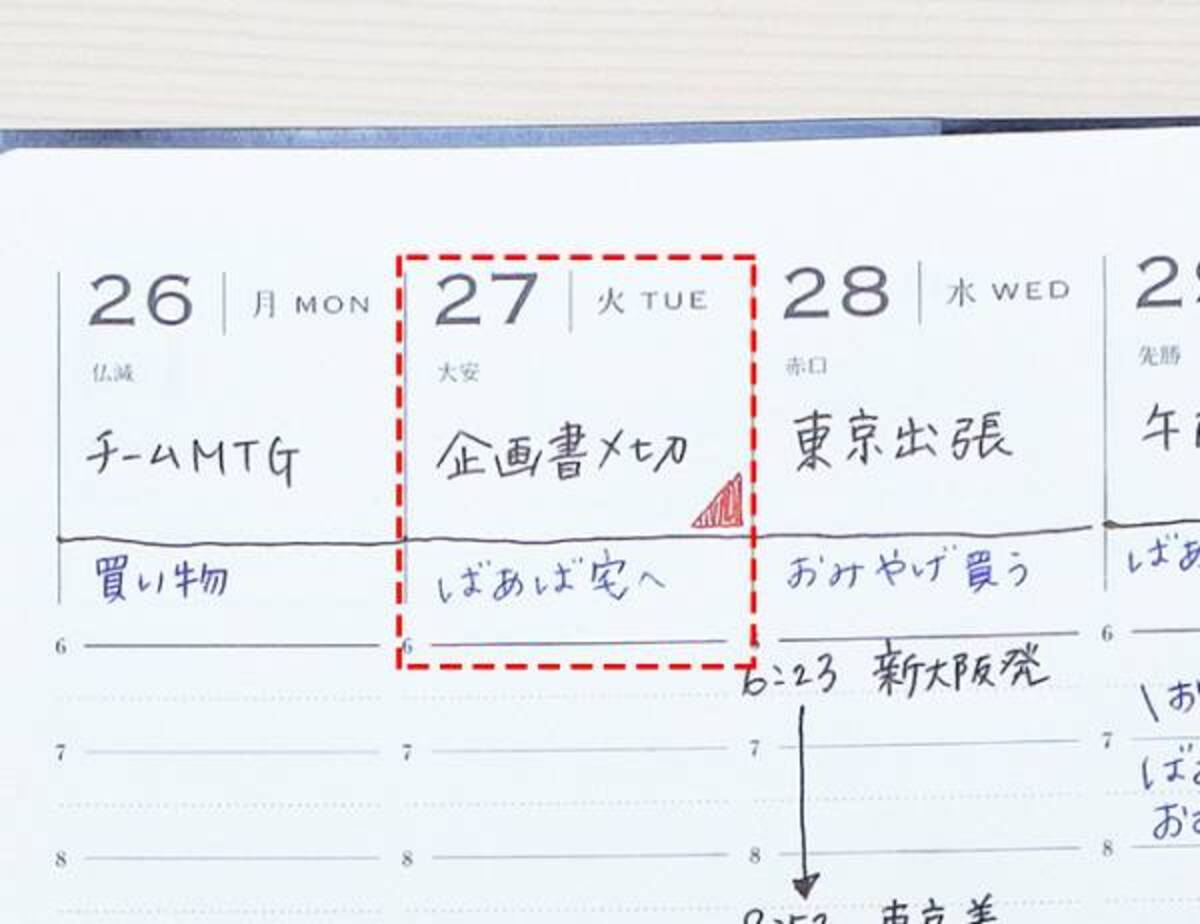 26 月 MON
仏滅
チームMTG
買い物
6
7
8
27 火 TUE
大安
企画書〆切
ばあば宅へ
6
7
8
28 水 WED
赤口
東京出張
おみやげ買う
6:23 新大阪発
7
8
先勝
6
7
8